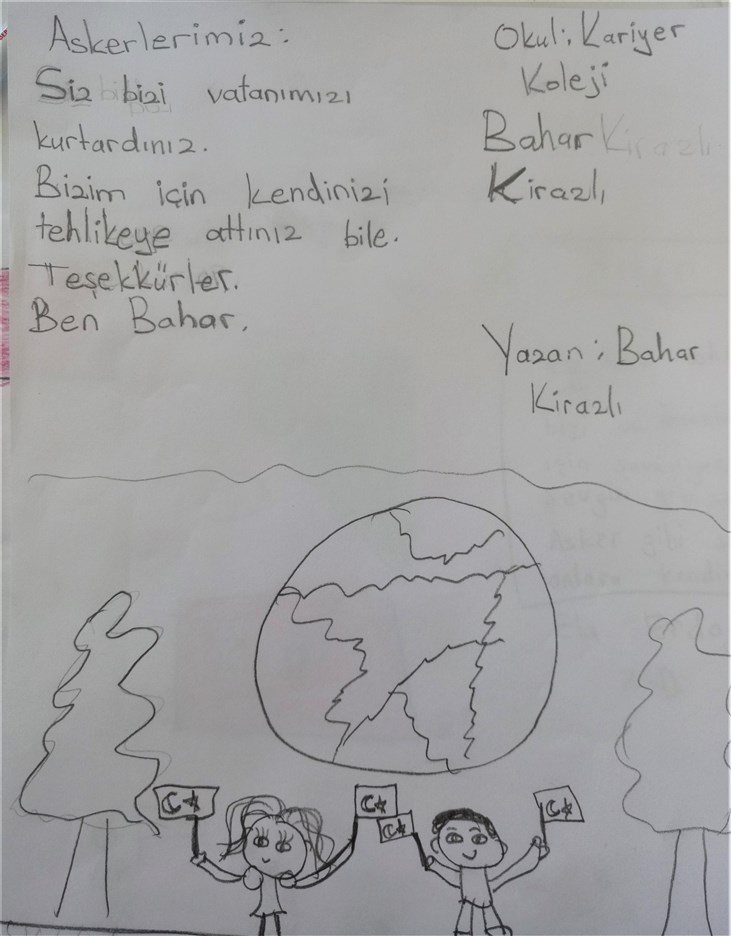 Askerlerimiz:
Siz bizi vatanımızı
kurtardınız.
Bizim için kendinizi
tehlikeye attınız bile.
Teşekkürler.
Ben Bahar.
Okul: Kariyer
Koleji
Bahar Kirazlı
Kirazlı
Yazan: Bahar
Kirazlı